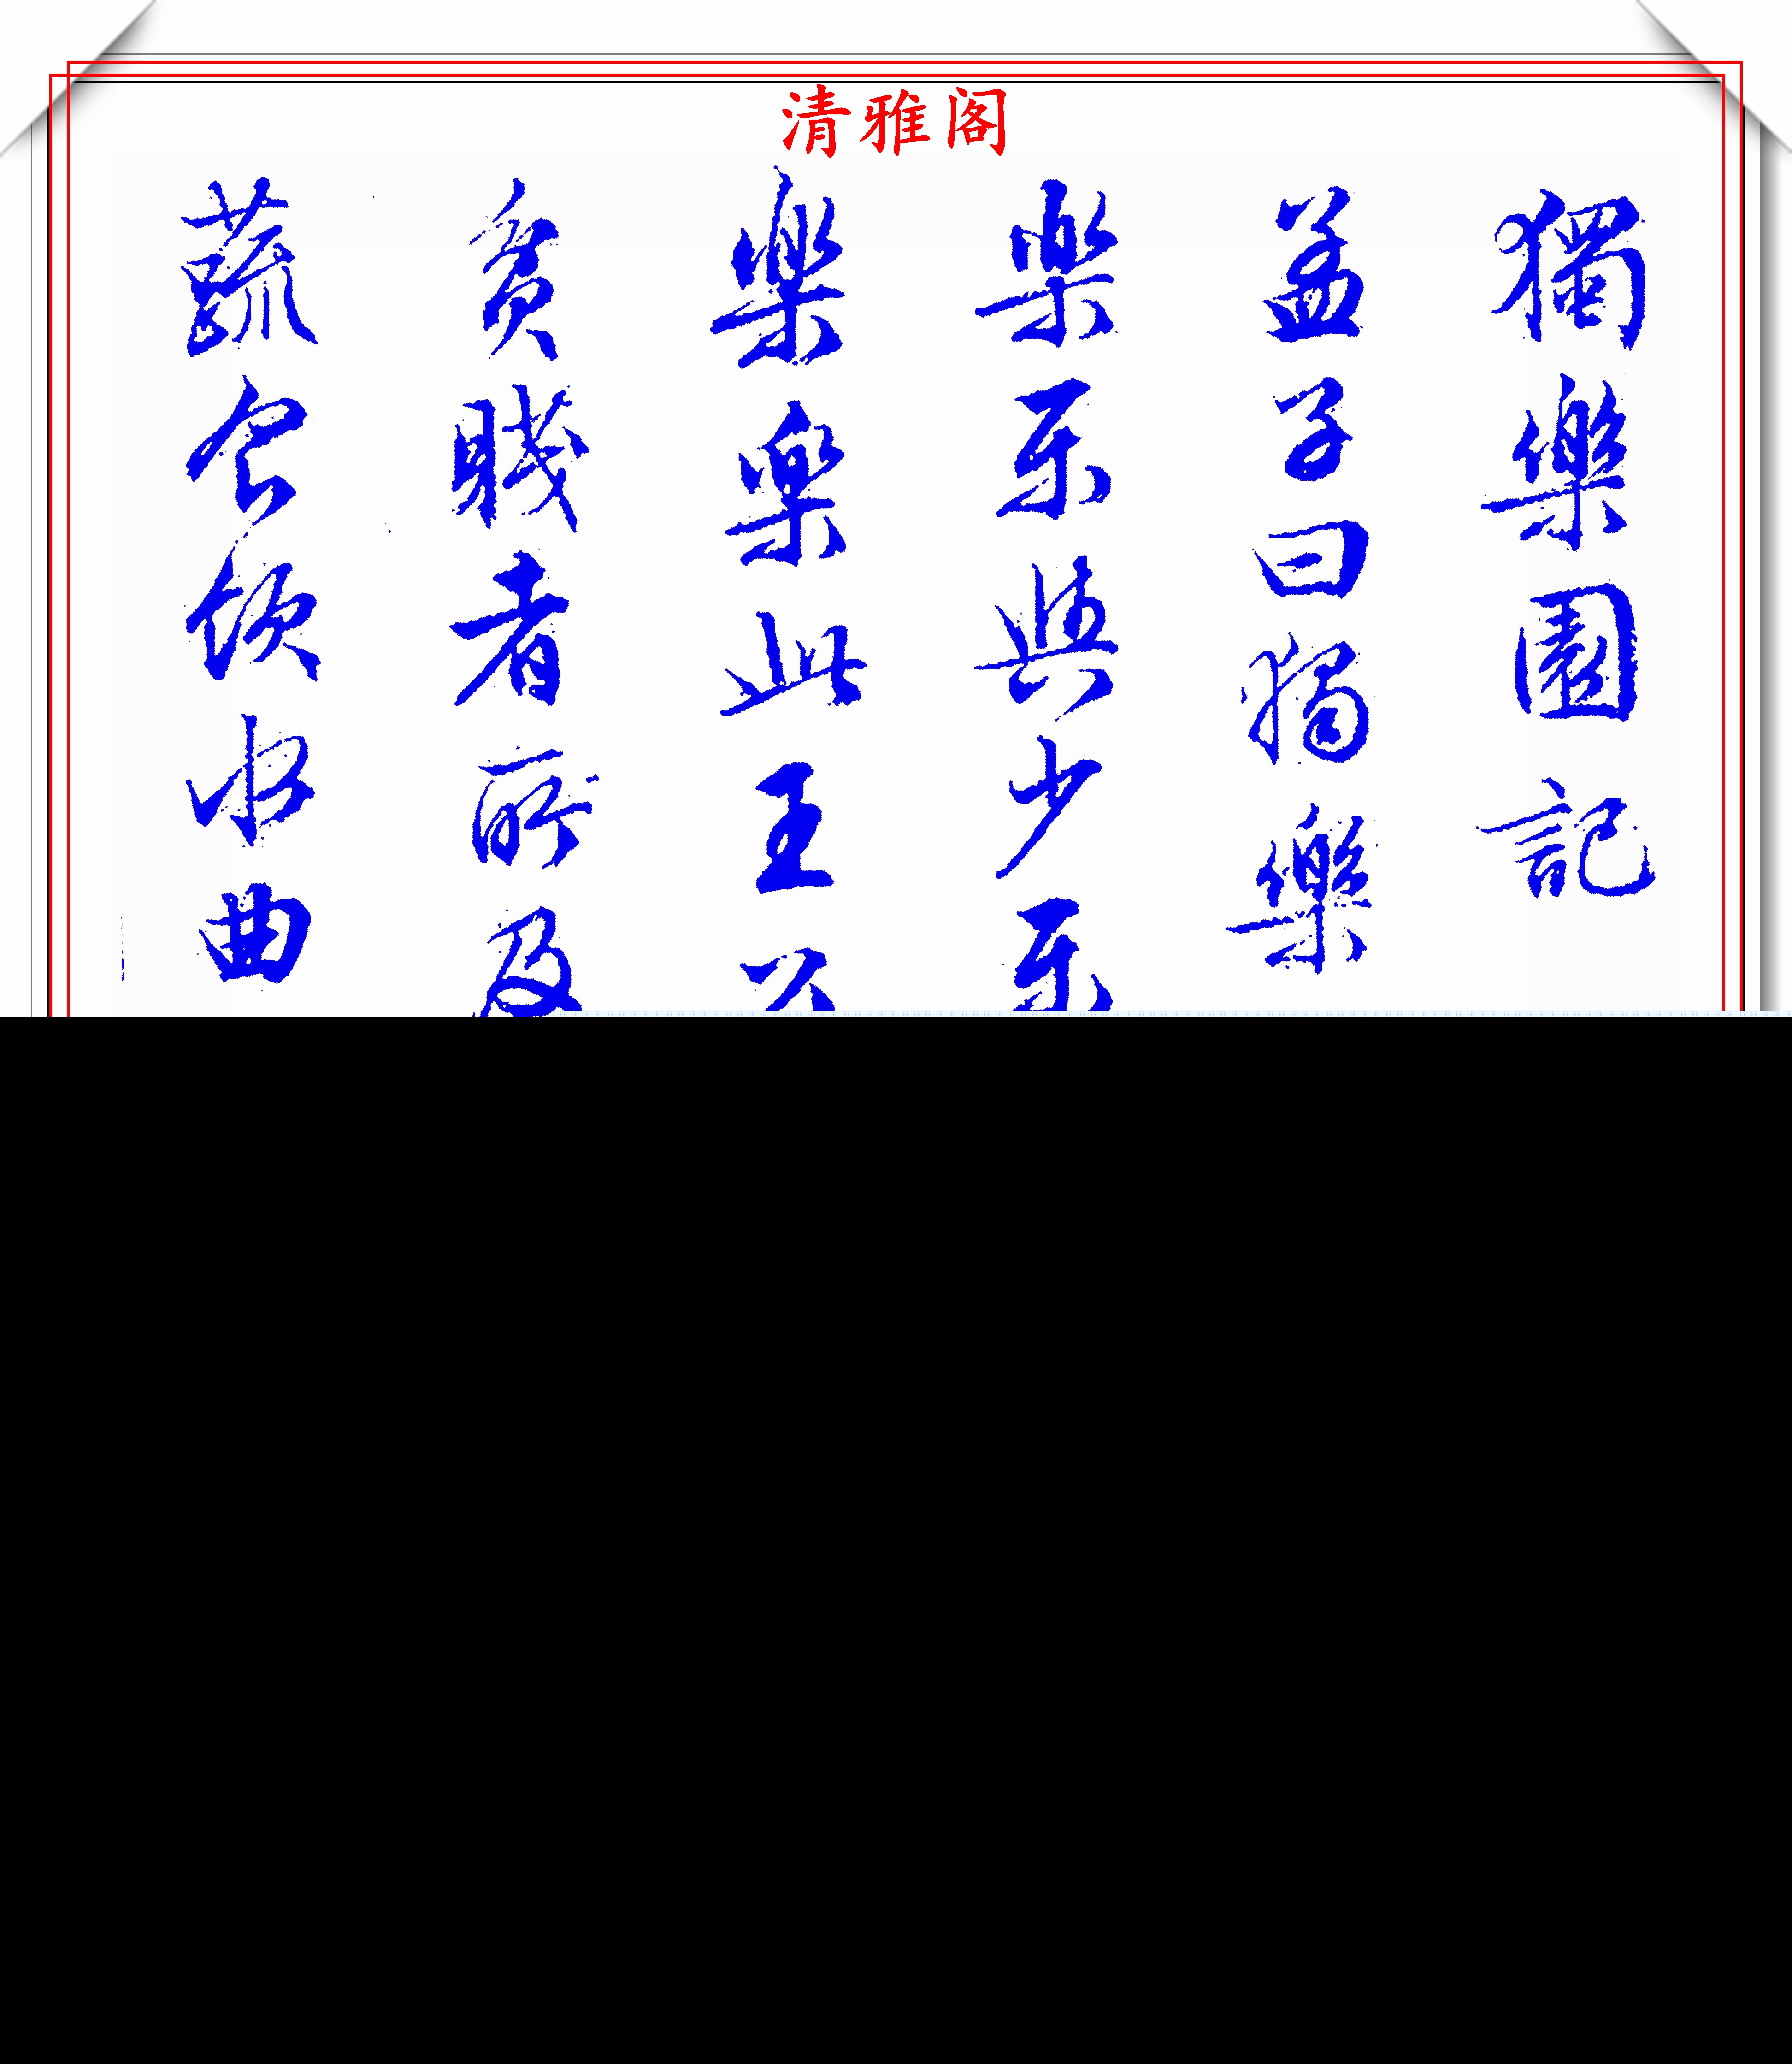 清雅阁
獨樂園記
孟子曰獨樂
樂不與少樂
樂樂此王公
貧賤者所及
蔬食飲水曲